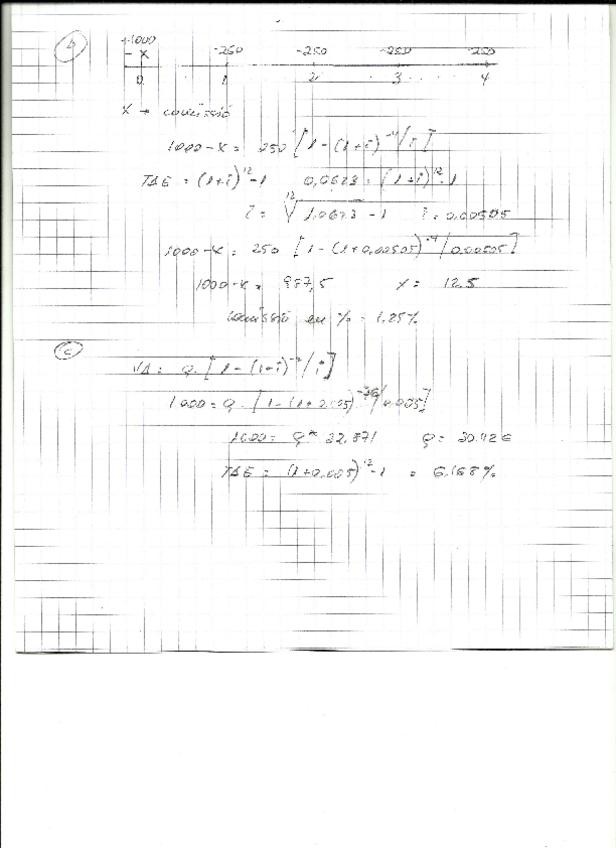 b)
+1000 -250 -250 -250 -250
- X
0 1 2 3 4
X → comissió
1000-X = 250 [1-(1+i)^-4/i]
TAE = (1+i)^12-1 0,0623 = (1+i)^12-1
i = 12√1,0623 - 1 i = 0,00505
1000-X = 250 [1-(1+0,00505)^-4/0,00505]
1000-X = 987,5 X = 12,5
comissió en % = 1,25%
c)
VA = Q · [1-(1+i)^-n/i]
1000 = Q · [1-(1+0,005)^-36/0,005]
1000 = Q * 32,871 Q = 30,42€
TAE = (1+0,005)^12-1 = 6,168%